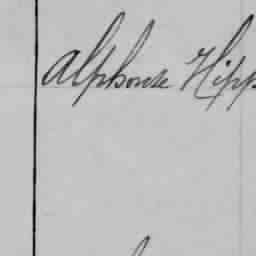 Alphonse Hipp